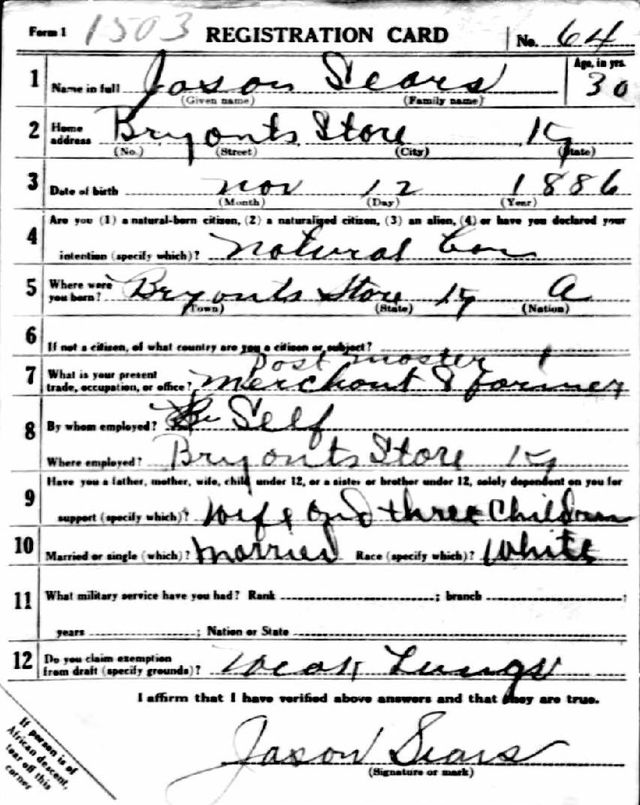 Form 1 1503 REGISTRATION CARD No. 64
1 Name in full Jason Sears Age, in yrs. 30
(Given name) (Family name)
2 Home address Bryonts Store Ky
(No.) (Street) (City) (State)
3 Date of birth Nov 12 1886
(Month) (Day) (Year)
4 Are you (1) a natural-born citizen, (2) a naturalized citizen, (3) an alien, (4) or have you declared your
intention (specify which)? natural
5 Where were you born? Bryonts Store Ky A
(Town) (State) (Nation)
6 If not a citizen, of what country are you a citizen or subject?
post master
7 What is your present trade, occupation, or office? merchant & farmer
8 By whom employed? Self
Where employed? Bryonts Store Ky
9 Have you a father, mother, wife, child under 12, or a sister or brother under 12, solely dependent on you for
support (specify which)? wife and three Children
10 Married or single (which)? Married Race (specify which)? White
11 What military service have you had? Rank ; branch ;
years ; Nation or State
12 Do you claim exemption from draft (specify grounds)? Weak Lungs
I affirm that I have verified above answers and that they are true.
Jason Sears
(Signature or mark)
If person is of
African descent,
tear off this
corner